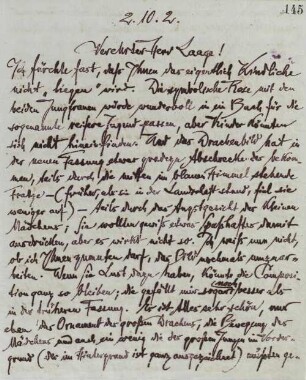 145
2.10.2.
Verehrter Herr Laage!
Ich fürchte fast, daß Ihnen das eigentlich Kindliche
nicht "liegen" wird. Die symbolische Rose mit den
beiden Jungfrauen würde wundervoll in ein Buch für die
sogenannte reifere Jugend passen, aber Kinder könnten
sich nicht hineinfinden. Und das Drachenbild hat in
der neuen Fassung etwas gradezu Abschreckendes bekommen,
teils durch die mitten im blauen Himmel stehende
Fratze – (früher, als sie in der Landschaft stand, fiel sie
weniger auf) – teils durch das Angstgesicht des kleinen
Mädchens; Sie wollten gewiß etwas Spaßhaftes damit
ausdrücken, aber es wirkt nicht so. Ich weiß nun nicht
ob ich Ihnen zumuten darf, das Bild nochmals umzuar-
beiten. Wenn Sie Lust dazu haben, könnte die Composi-
tion ganz so bleiben; die gefällt mir sogar noch besser als
in der früheren Fassung. Es ist Alles sehr schön, nur
eben das Ornament des großen Drachens, die Bewegung des
Mädchens und auch ein wenig die der großen Jungen im Vorder-
grund (der im Hintergrund ist ganz ausgezeichnet) müßten ge-